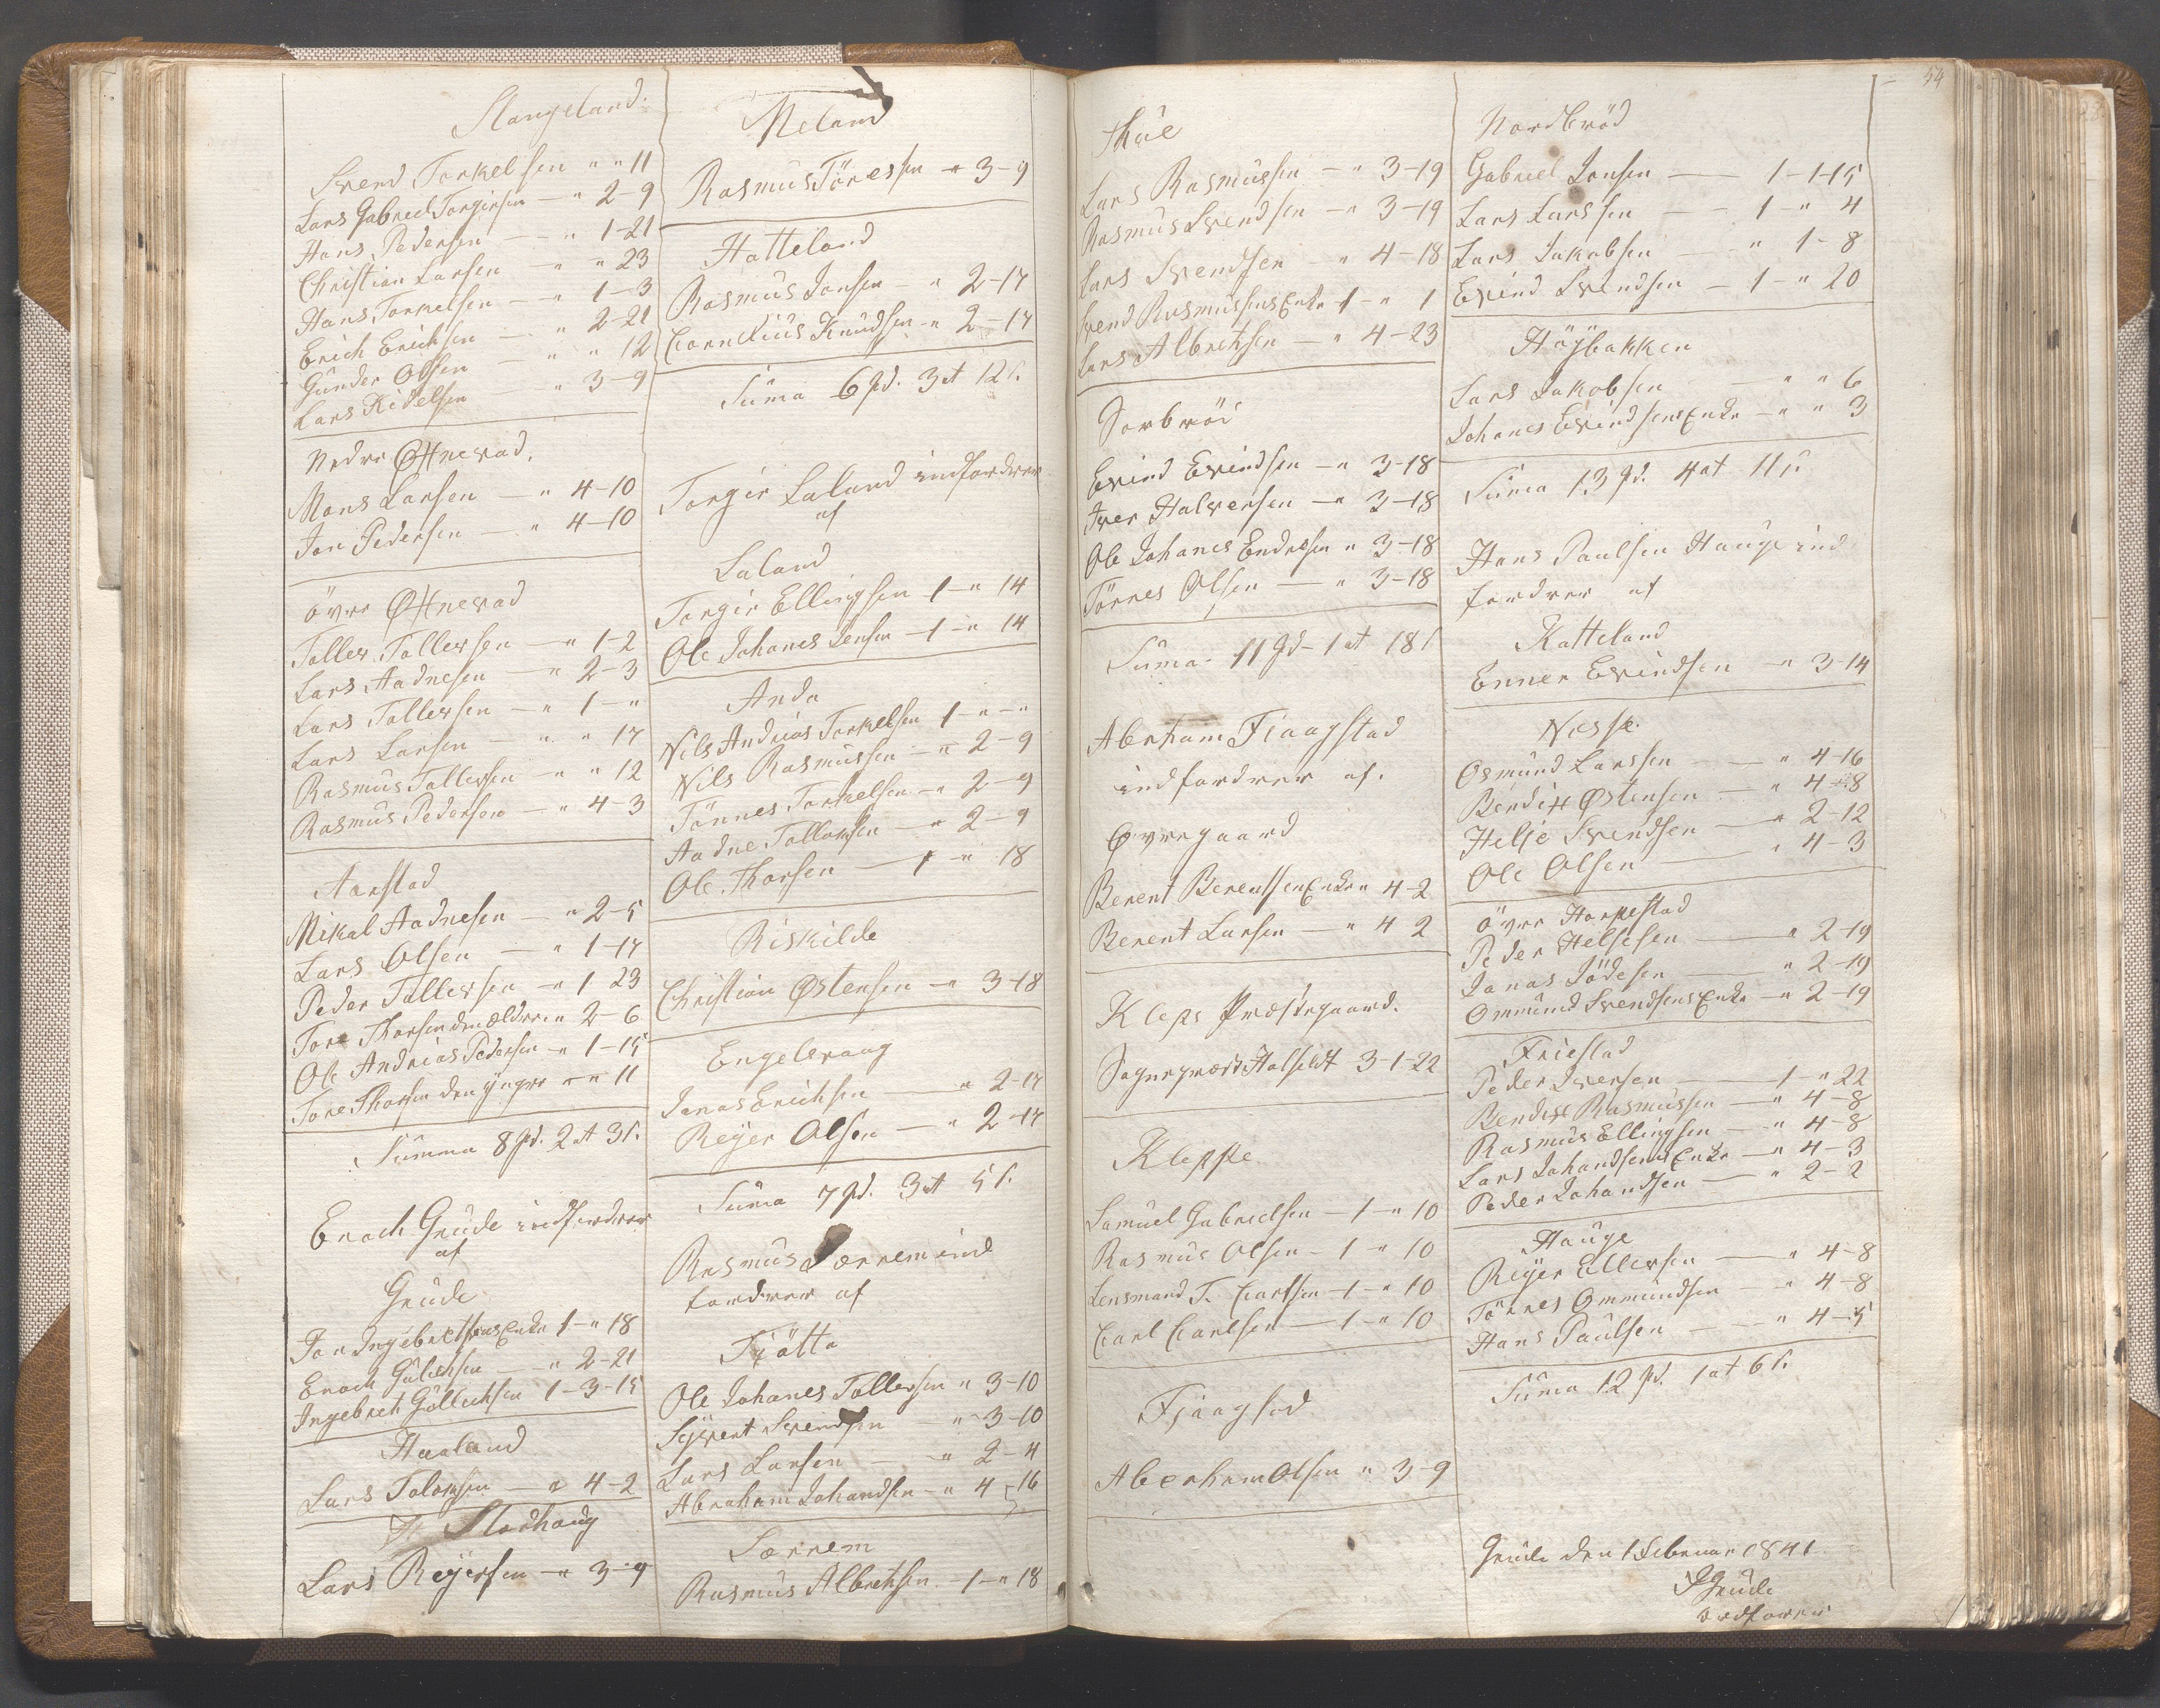 Slangeland.
Svend Torkelsen " " 11
Lars Gabriel Torgirsen — " 2-9
Hans Pedersen — " 1-21
Christian Larsen — " " 23
Hans Torkelsen — " 1-3
Erich Erichsen — " 2-21
Gunder Olsen — " " 12
Lars Kidelsen — " 3-9
Nedre Øxnevad.
Mons Larsen — " 4-10
Jon Pedersen — " 4-10
övre Øxnevad
Toller Tollevsen — " 1-2
Lars Aadnesen — " 2-3
Lars Tollevsen — " 1-"
Lars Larsen — " " 17
Rasmus Tollevsen — " " 12
Rasmus Pedersen — " 4-3
Aarstad
Mikal Aadnesen — " 2-5
Lars Olsen — " 1-17
Peder Tollevsen — " 1 23
Tore Thorsen den ældre " 2-6
Ole Andreas Pedersen — " 1-15
Tore Thorsen den yngre — " " 11
Summa 8 pd. 2 at 3 s.
Enoch Grude indfordrer
af
Grude
Jon Ingebretsens Enke 1-" 18
Enoch Gulichsen — " 2-21
Ingebret Gøllichsen 1-3-15
Haaland
Lars Tolomsen — " 4-2
Storhaug
Lars Reyersen — " 3-9
Meland
Rasmus Tönessen — " 3-9
Hatteland
Rasmus Jonsen — " 2-17
Cornelius Knudsen — " 2-17
Suma 6 pd. 3 at 12 s.
Torgir Laland indfordrer
af
Laland
Torgir Ellingsen — 1-" 14
Ole Johanes Jensen — 1-" 14
Anda
Nils Andreas Torkelsen 1-"-"
Nils Rasmussen — " 2-9
Tönnes Torkelsen — " 2-9
Aadne Tollevsen — " 2-9
Ole Thorsen — 1-" 18
Riskilde
Christian Østensen — " 3-18
Engelsvaag
Jonas Erichsen — " 2-17
Reyer Olsen — " 2-17
Suma 7 pd. 3 at 5 s.
Rasmus Særrem ind
fordrer af
Tjötta
Ole Johanes Tollevsen " 3-10
Syvert Svendsen — " 3-10
Lars Larsen — " 2-4
Abraham Johandsen — " 4-16
Særrem
Rasmus Albretsen — 1-" 18
54
Thue
Lars Rasmussen — " 3-19
Rasmus Svendsen — " 3-19
Lars Svendsen — " 4-18
Svend Rasmussens Enke 1-" 1
Lars Albretsen — " 4-23
Sørbröd
Evind Evindsen — " 3-18
Iver Halversen — " 3-18
Ole Johanes Endresen " 3-18
Tönnes Olsen — " 3-18
Suma 11 pd - 1 at 18 s
Abraham Fjaagstad
indfordrer af.
Øvregaard
Berent Berentsens Enke " 4-2
Berent Larsen — " 4 2
Kleps Præstegaard.
Sognepræst Halseldt 3-1-22
Kleppe
Samuel Gabrielsen — 1-" 10
Rasmus Olsen — 1-" 10
Lensmand T. Carlsen — 1-" 10
Carl Carlsen — 1-" 10
Fjaagstad
Aberham Olsen " 3-9
Nordbröd
Gabriel Jonsen — 1-1-15
Lars Larsen — 1-" 4
Lars Jakobsen — " 1-8
Evind Svendsen — 1-" 20
Höybakken
Lars Jakobsen — " " 6
Johanes Evindsens Enke — " " 3
Suma 13 pd. 4 at 11 s
Hans Paulsen Hauge ind
fordrer af
Katteland
Enner Evindsen — " 3-14
Nesse.
Osmund Larssen — " 4-16
Bendix Østensen — " 4-8
Helje Svendsen — " 2-12
Ole Olsen — " 4-3
övre Horpestad
Peder Heljesen — " 2-19
Jonas Jödesen — " 2-19
Ommund Svendsens Enke — " 2-19
Friestad
Peder Iversen — 1-" 22
Bendix Rasmussen — " 4-8
Rasmus Ellingsen — " 4-8
Lars Johandsens Enke — " 4-3
Peder Johandsen — " 2-2
Hauge
Reyer Ellevsen — " 4-8
Tönnes Ommundsen — " 4-8
Hans Paulsen — " 4-5
Suma 12 pd. 1 at 6 s.
Grude den 1 Februar 1841
Grude
ordfører